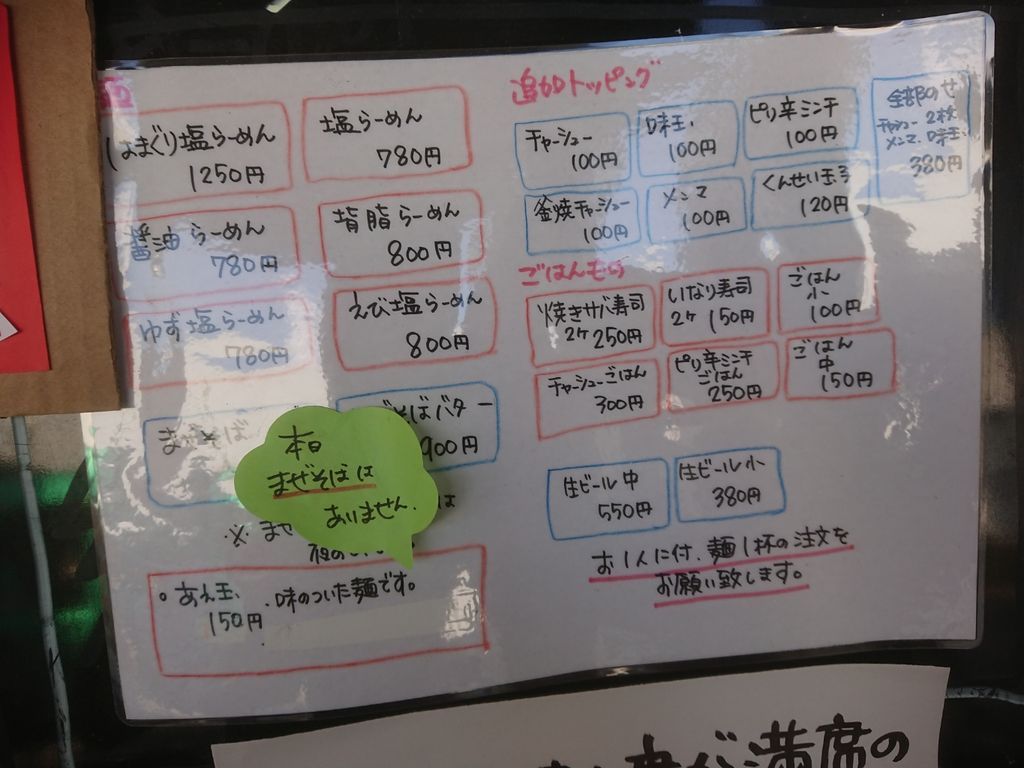 はまぐり塩らーめん
1250円
塩らーめん
780円
醤油らーめん
780円
背脂らーめん
800円
ゆず塩らーめん
780円
えび塩らーめん
800円
まぜそば
そばバター
900円
本日
まぜそばは
ありません.
※ まぜ
は
夜の
。あえ玉、
150円
・味のついた麺です。
追加トッピング
チャーシュー
100円
味玉
100円
ピリ辛ミンチ
100円
全部のせ
チャーシュー2枚
メンマ、味玉
380円
釜焼チャーシュー
100円
メンマ
100円
くんせい玉子
120円
ごはんもの
焼きサバ寿司
2ケ 250円
いなり寿司
2ケ 150円
ごはん
小
100円
チャーシューごはん
300円
ピリ辛ミンチ
ごはん
250円
ごはん
中
150円
生ビール中
550円
生ビール小
380円
お1人に付、麺1杯の注文を
お願い致します。
満席の